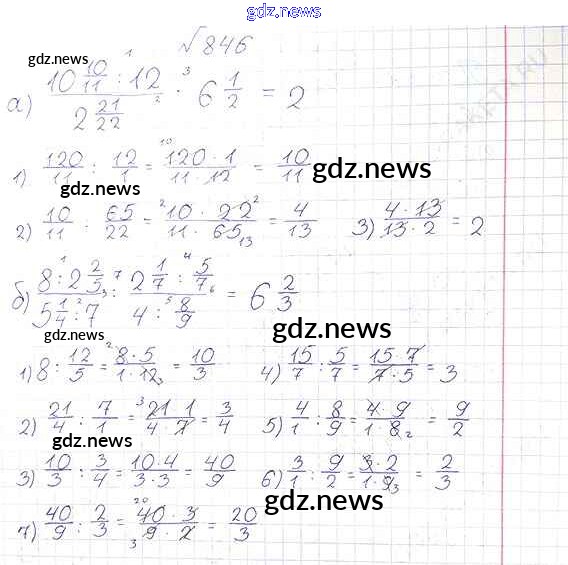 gdz.news
№846
а) (10 10/11 : 12) / (2 21/22) · 6 1/2 = 2
gdz.news
1) 120/11 : 12/1 = 120·1/11·12 = 10/11
gdz.news
gdz.news
2) 10/11 : 65/22 = 10·22/11·65 = 4/13 3) 4·13/13·2 = 2
б) (8 : 2 2/5) / (5 1/4 : 7) : (2 1/7 : 5/7) / (4 : 8/9) = 6 2/3
gdz.news
gdz.news
1) 8 : 12/5 = 8·5/1·12 = 10/3 4) 15/7 : 5/7 = 15·7/7·5 = 3
2) 21/4 : 7/1 = 21·1/4·7 = 3/4 5) 4/1 : 8/9 = 4·9/1·8 = 9/2
gdz.news
3) 10/3 : 3/4 = 10·4/3·3 = 40/9 6) 3/1 : 9/2 = 3·2/1·9 = 2/3
gdz.news
7) 40/9 : 2/3 = 40·3/9·2 = 20/3